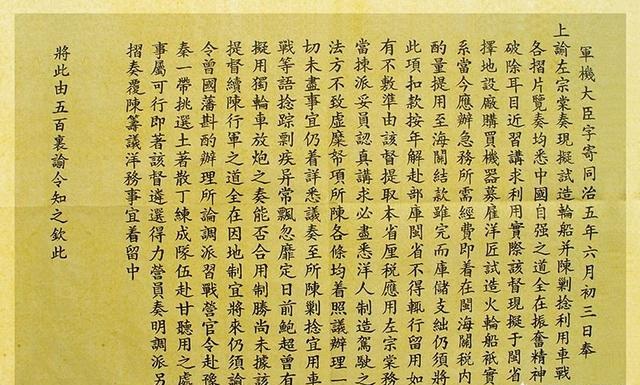 軍機大臣字寄同治五年六月初三日奉
上諭左宗棠奏現擬試造輪船并陳剿捻利用車戰
各摺片覽奏均悉中國自强之道全在振奮精神
破除耳目近習講求利用實際該督現擬于閩省
擇地設廠購買機器募雇洋匠試造火輪船祇實
系當今應辦急務所需經費即着在閩海關税内
酌量提用至海關結款雖完而庫儲支絀仍須將
此項扣款按年解赴部庫閩省不得輒行留用如
有不敷準由該督提取本省厘税應用左宗棠務
當揀派妥員認真講求必盡悉洋人制造駕駛之
法方不致虚糜帑項所陳各條均着照議辦理一
切未盡事宜仍着詳悉議奏至所陳剿捻宜用車
戰等語捻踪剽疾异常飄忽靡定日前鮑超曾有
擬用獨輪車放炮之奏能否合用制勝尚未據該
提督續陳行軍之道全在因地制宜將來仍須諭
令曾國藩斟酌辦理所論調派習戰營官令赴豫
秦一帶挑選土著散丁練成隊伍赴甘聽用之處
事屬可行即著該督遴選得力營員奏明調派另
摺奏覆陳籌議洋務事宜着留中
將此由五百裏諭令知之欽此